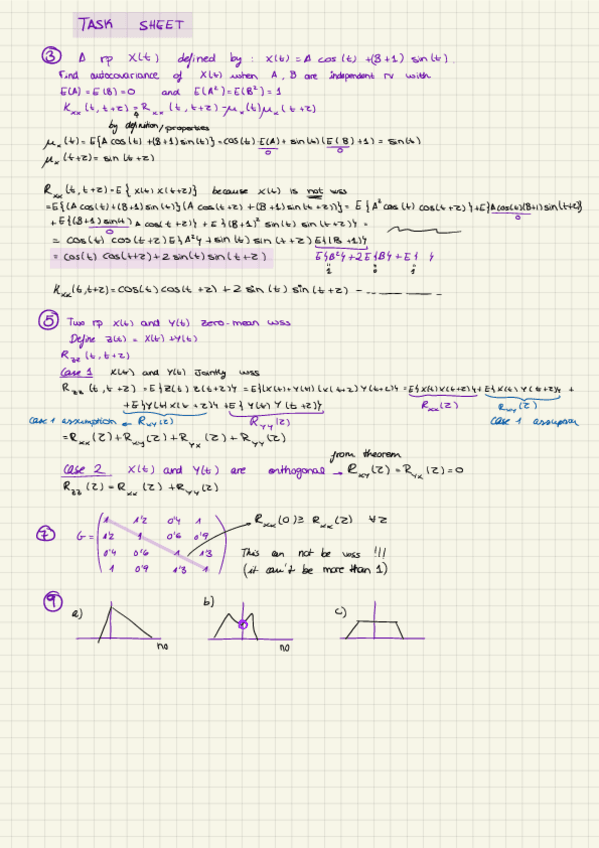 TASK SHEET
③ A rp X(t) defined by: X(t) = A cos(t) + (B+1) sin(t).
Find autocovariance of X(t) when A, B are independent rv with
E(A) = E(B) = 0 and E(A²) = E(B²) = 1
Kxx(t, t+z) = Rxx(t, t+z) - μx(t)μx(t+z)
by definition/properties
μx(t) = E{A cos(t) + (B+1) sin(t)} = cos(t) E(A) + sin(t)(E(B)+1) = sin(t)
0 0
μx(t+z) = sin(t+z)
Rxx(t, t+z) = E{X(t) X(t+z)} because X(t) is not wss
= E{(A cos(t) + (B+1) sin(t))(A cos(t+z) + (B+1) sin(t+z))} = E{A² cos(t) cos(t+z)} + E{A cos(t)(B+1) sin(t+z)}
0
+ E{(B+1) sin(t) A cos(t+z)} + E{(B+1)² sin(t) sin(t+z)} =
0
= cos(t) cos(t+z) E{A²} + sin(t) sin(t+z) E{(B+1)}
= cos(t) cos(t+z) + 2 sin(t) sin(t+z) E{B²} + 2E{B} + E{ }
1 0 1
Kxx(t, t+z) = cos(t) cos(t+z) + 2 sin(t) sin(t+z) -
⑤ Two rp X(t) and Y(t) zero-mean wss
Define Z(t) = X(t) + Y(t)
Rzz(t, t+z)
Case 1 X(t) and Y(t) Jointly wss
Rzz(t, t+z) = E{Z(t) Z(t+z)} = E{(X(t)+Y(t))(X(t+z)+Y(t+z))} = E{X(t) X(t+z)} + E{X(t) Y(t+z)} +
Rxx(z) Rxy(z)
+ E{Y(t) X(t+z)} + E{Y(t) Y(t+z)}
case 1 assumption ← Rxy(z) Ryy(z) case 1 assumption
= Rxx(z) + Rxy(z) + Ryx(z) + Ryy(z)
from theorem
Case 2 X(t) and Y(t) are orthogonal → Rxy(z) = Ryx(z) = 0
Rzz(z) = Rxx(z) + Ryy(z)
⑦ G =
1 1'2 0'4 1
1'2 1 0'6 0'9
0'4 0'6 1 1'3
1 0'9 1'3 1
Rxx(0) ≥ Rxx(z) ∀z
This can not be wss !!!
(it can't be more than 1)
⑨ a) b) c)
no no